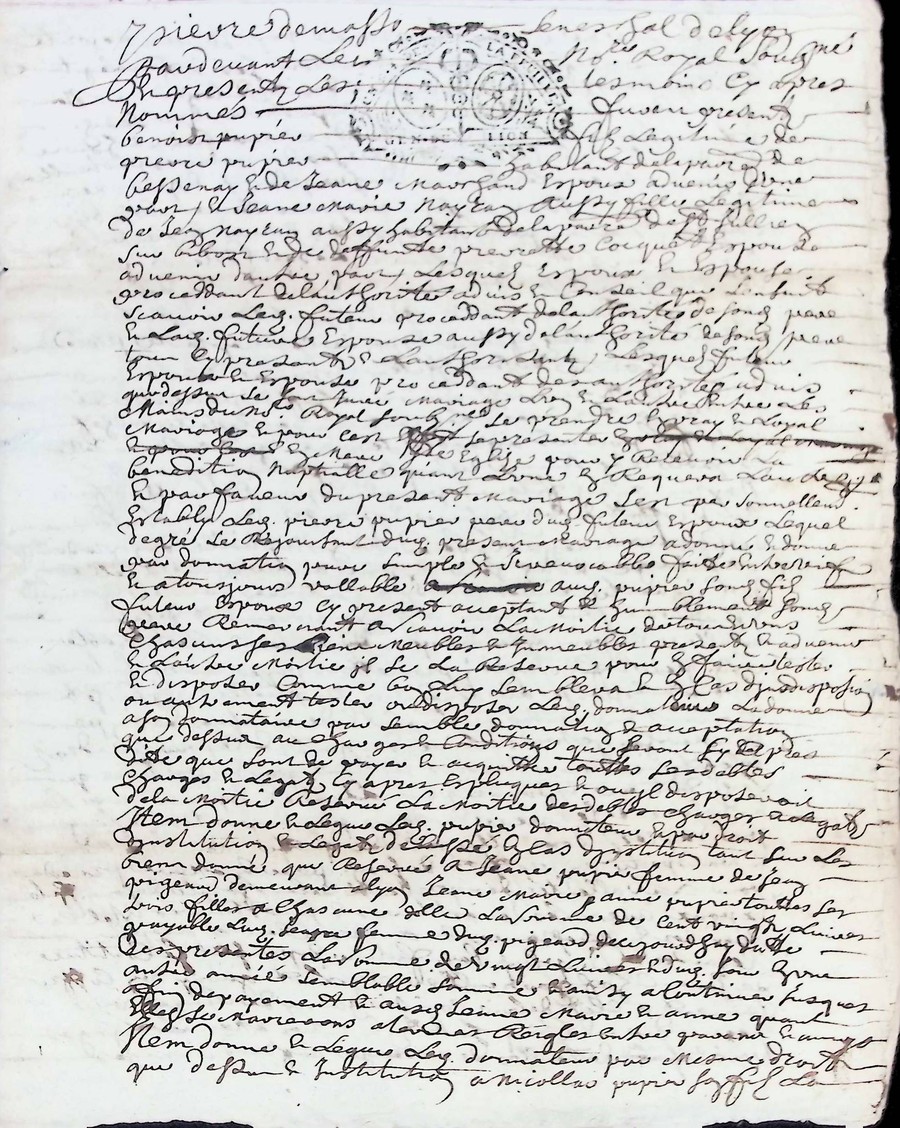 pierre demasso senerchal delyon
Pardevant Le No.re Royal soubz.né
Et presentz Les tesmoins Cy apres
Nommés furent presentz
benoist pupier filz Legitime de
pierre pupier habitant delaparoisse de
bessenay & de Jeane Marchand Espoux advenir d'une
part, & Jeane Marie Nayrau Aussy fille Legitime
de Jean Nayrau aussy habitant delaparoisse de St Jullien
sur bibost & de deffunte pierrette Cocquet Espouse
advenir dautre part, Lesquelz Espoux & Espouse
procedant delauthorité advis & Conseil que sensuit
scavoir Led. futeur procedant delauthorité desond. pere
& Lad. future Espouse aussy delauthorité desond. pere
tous Cy presentz & Lauthorisantz, Lesquelz futeur
Espoux & Espouse procedant desauthorites advis
que dessus se sont promis Mariage L'un & L'autre Entre Les
Mains du No.re Royal soubz.né se prendre En vray & Loyal
Mariage & pour C'est se presenter
En Nostre Mere Ste Eglise pour y Recevoir La
benediction Nuptialle quant L'un Requerra L'autre
Et par faveur du present Mariage s'est personnellem.
Estably Led. pierre pupier pere dud. futeur Espoux Lequel
degré se Resjouissant dud. present Mariage adonné & donne
par donnation pure simple & irrevocable faite Entre vifs
& atousjours vallable aud. pupier sond. filz
futeur Espoux Cy present acceptant & humblement sond.
pere Remerciant Ascavoir La Moitié detous & uns
Chascuns ses biens Meubles & Immeubles presentz & advenir
& L'autre Moitié il se La Reserve pour En faire tester
& disposer Comme bon Luy semblera & En Cas dindisposition
ou autrement tester ou disposer Led. donnateur La donne
a son donnataire par semble donnation & acceptation
que dessus aux Charges & Conditions que seront Cy apres
dite que sont de payer & acquitter touttes ses debtes
Charges & Legatz Cy apres Expliques & ou il disposeroit
dela Moitié Reservée La Moitié desdebtes Charges & Legatz
Item donne & Legue Led. pupier donnateur & par droit
Institution & Legat delaissé En Cas dinstitution tant sur Les
biens donné que Reservé A Jeane pupier femme de Jean
pigeard demeurant alyon Jeane Marie & anne pupier touttes ses
trois filles a Chascune delle La somme de Cent vingtz Livres
payable a Lad. Jeane femme dud. pigeard decejourdhuy datte
des presentes La somme de vingt Livres & dud. jour En une
année semblable somme & ainsy a Continuer jusques
afin depayement & ausd. Jeane Marie & anne quant
Elles se Marieront aleurs Reigles Entre parens & amys
Item donne & Legue Led. donnateur par Mesme droit
que dessus & Institution a Nicollas pupier son filz La